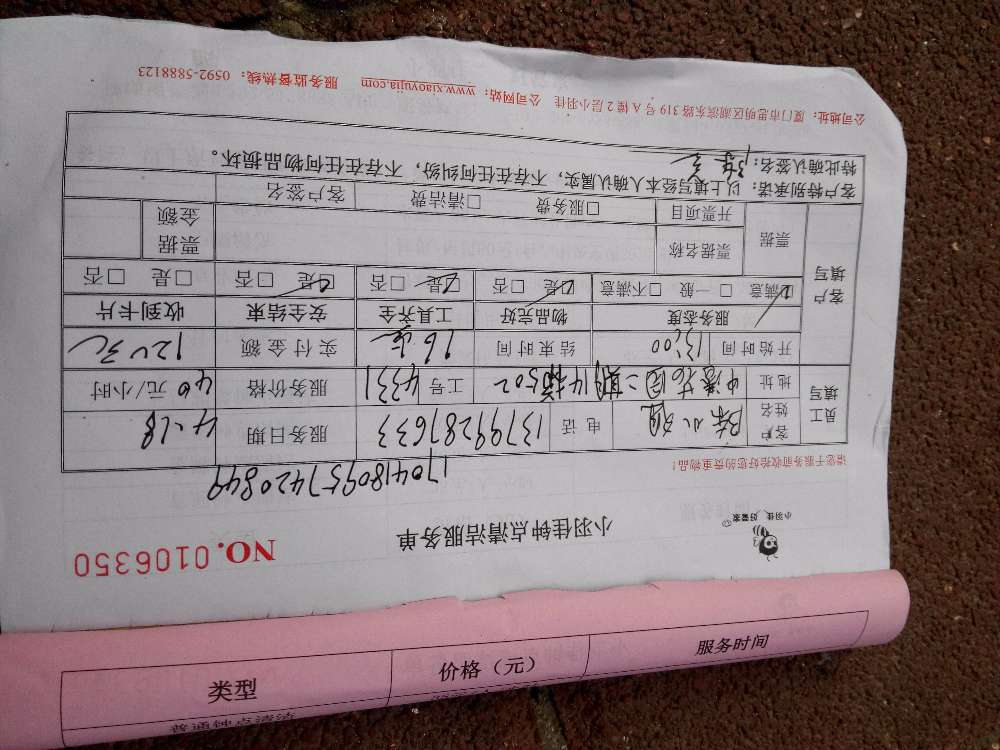 小羽佳 好管家
小羽佳钟点清洁服务单
NO.0106350
17041809574420849
请您于服务前收拾好您的贵重物品!
员工填写
客户姓名 陈小姐 电话 13799287633 服务日期 4.18
地址 二期14梯502 工号 4331 服务价格 40元/小时
开始时间 13:00 结束时间 16点 实付金额 120元
服务态度 物品完好 工具齐全 安全结束 收到卡片
客户填写
☑满意 □一般 □不满意 ☑是 □否 ☑是 □否 ☑是 □否 □是 □否
票据 票据名称 票据金额
开票项目 □服务费 □清洁费 客户签名
客户特别承诺:以上填写经本人确认属实,不存在任何纠纷,不存在任何物品损坏。
特此确认签名:
公司地址:厦门市思明区湖滨东路319号A幢2层小羽佳 公司网站:www.xiaoyujia.com 服务监督热线:0592-5888123
类型 价格(元) 服务时间
普通钟点清洁